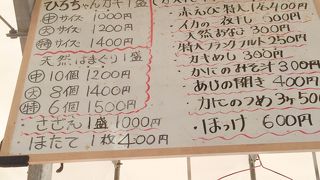 ひろちゃんカキ1盛
㊥サイズ 1000円
㊛サイズ 1200円
㊕サイズ 1400円
天然はまぐり1盛
㊥10個 1200円
㊛8個 1400円
㊕6個 1500円
さざえ1盛1000円
ほたて1枚400円
赤えび特大1本400円
イカの一夜干し500円
天然あなご300円
特大フランクフルト250円
カキめし300円
かにのみそ汁300円
あじの開き400円
カにのつめ3ヶ50
ほっけ600円